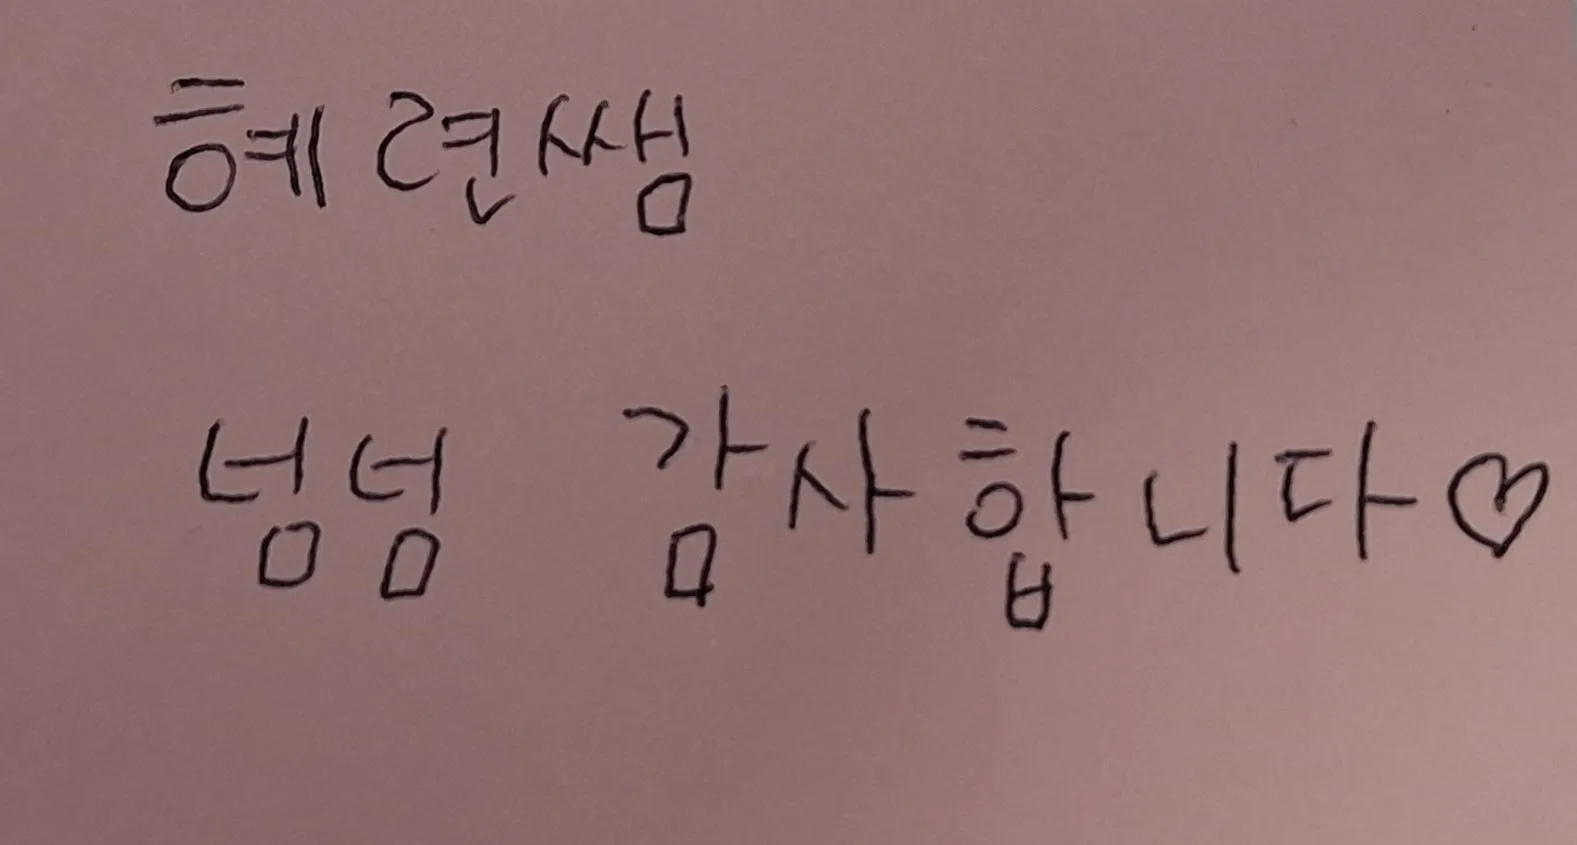 혜련쌤
넘넘 감사합니다♡